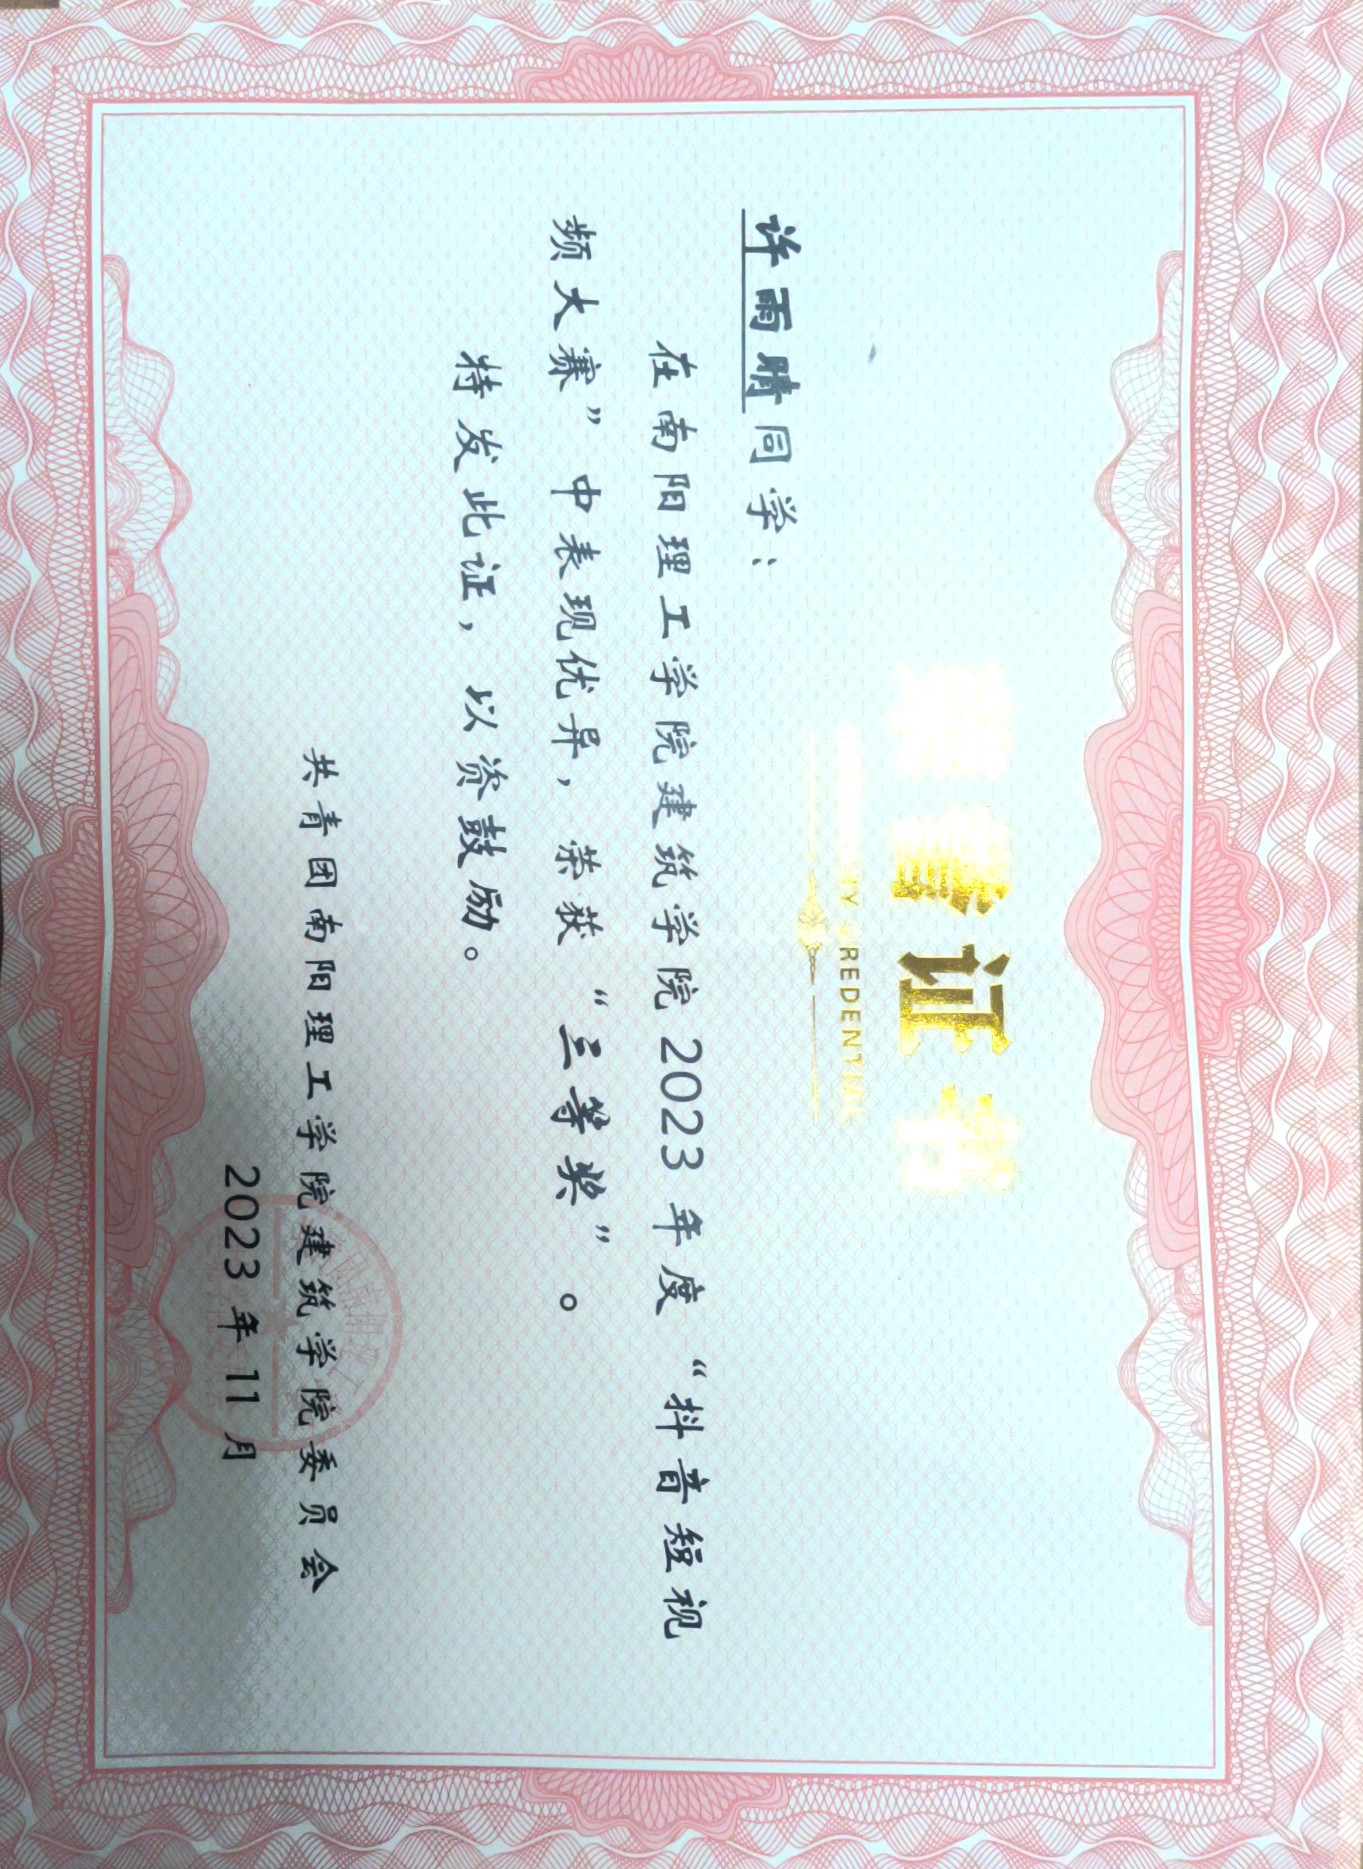 荣誉证书
HONORARY CREDENTIAL
许雨晴同学：
在南阳理工学院建筑学院2023年度“抖音短视
频大赛”中表现优异，荣获“三等奖”。
特发此证，以资鼓励。
共青团南阳理工学院建筑学院委员会
2023年11月